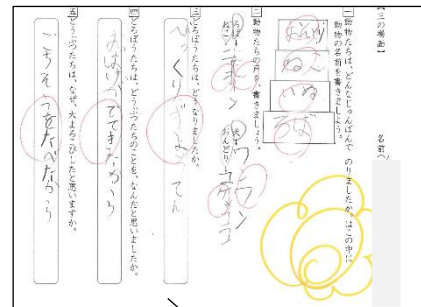 【三の場面】
名前（
一 動物たちは、どんなじゅんばんで のりましたか。はこの中に
動物の名前を書きましょう。
おんどり
ねこ
いぬ
ろば
二 動物たちの声を、書きましょう。
ろば
ヒヒン
いぬ
ワンワン
ねこ
ニャーン
おんどり
コケコッコー
三 どろぼうたちは、どうなりましたか。
びっくりぎょうてん
四 どろぼうたちは、どうぶつたちのことを、なんだと思いましたか。
おばけがでてきたから
五 どうぶつたちは、なぜ、大よろこびしたと思いますか。
ごちそうをたべたから